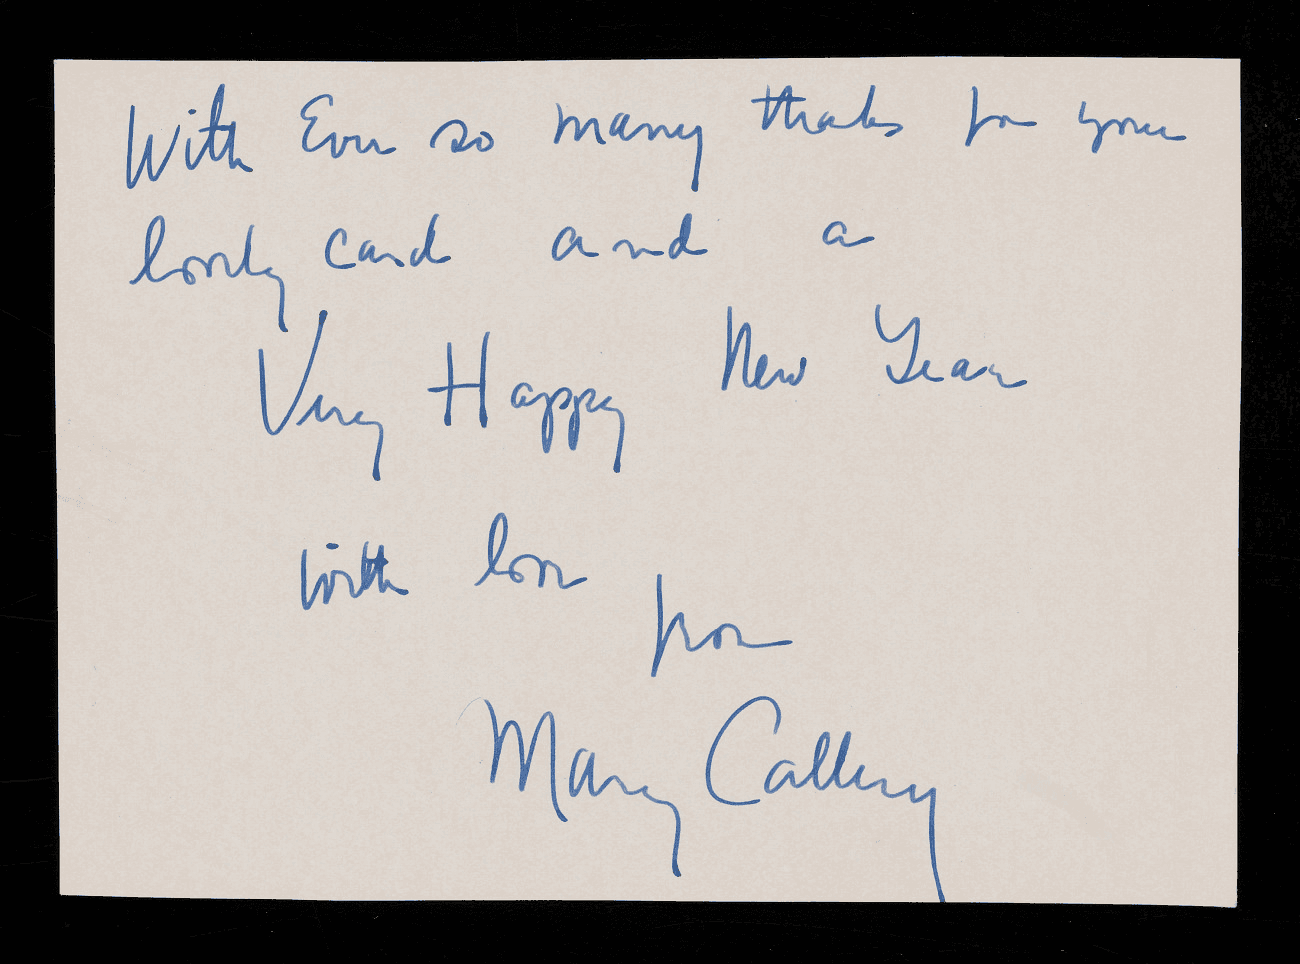 With Ever so many thanks for your
lovely card and a
Very Happy New Year
with love
from
Mary Callery